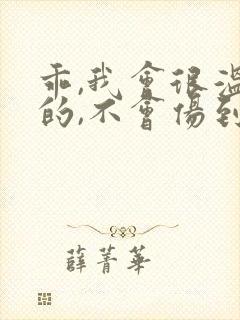 乖,我會很溫
的,不會傷到
薛菁華